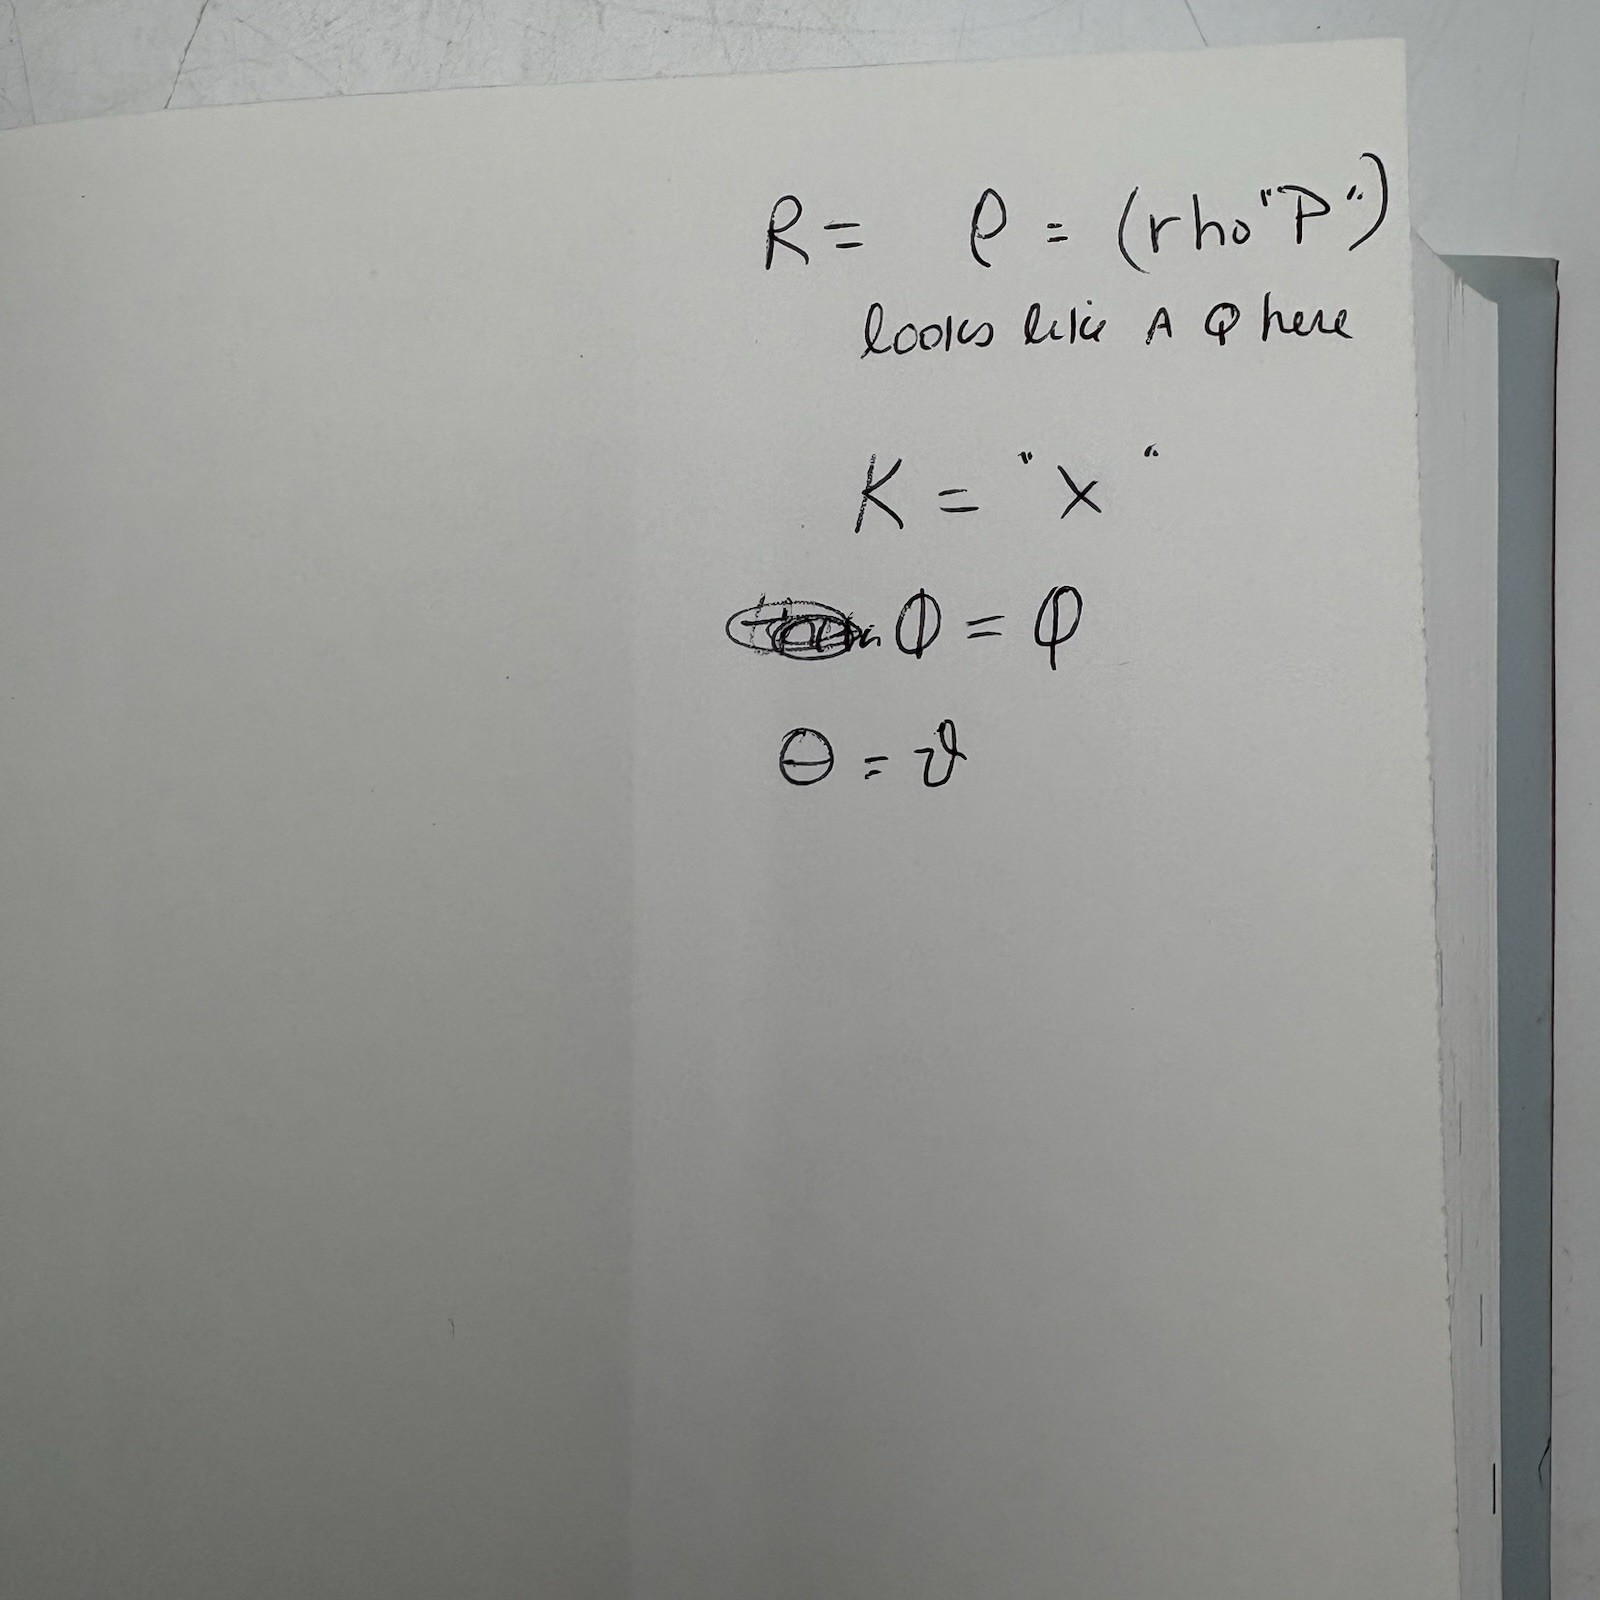 R = ρ = (rho "P")
looks like A Q here
K = "x"
Φ = φ
Θ = ϑ